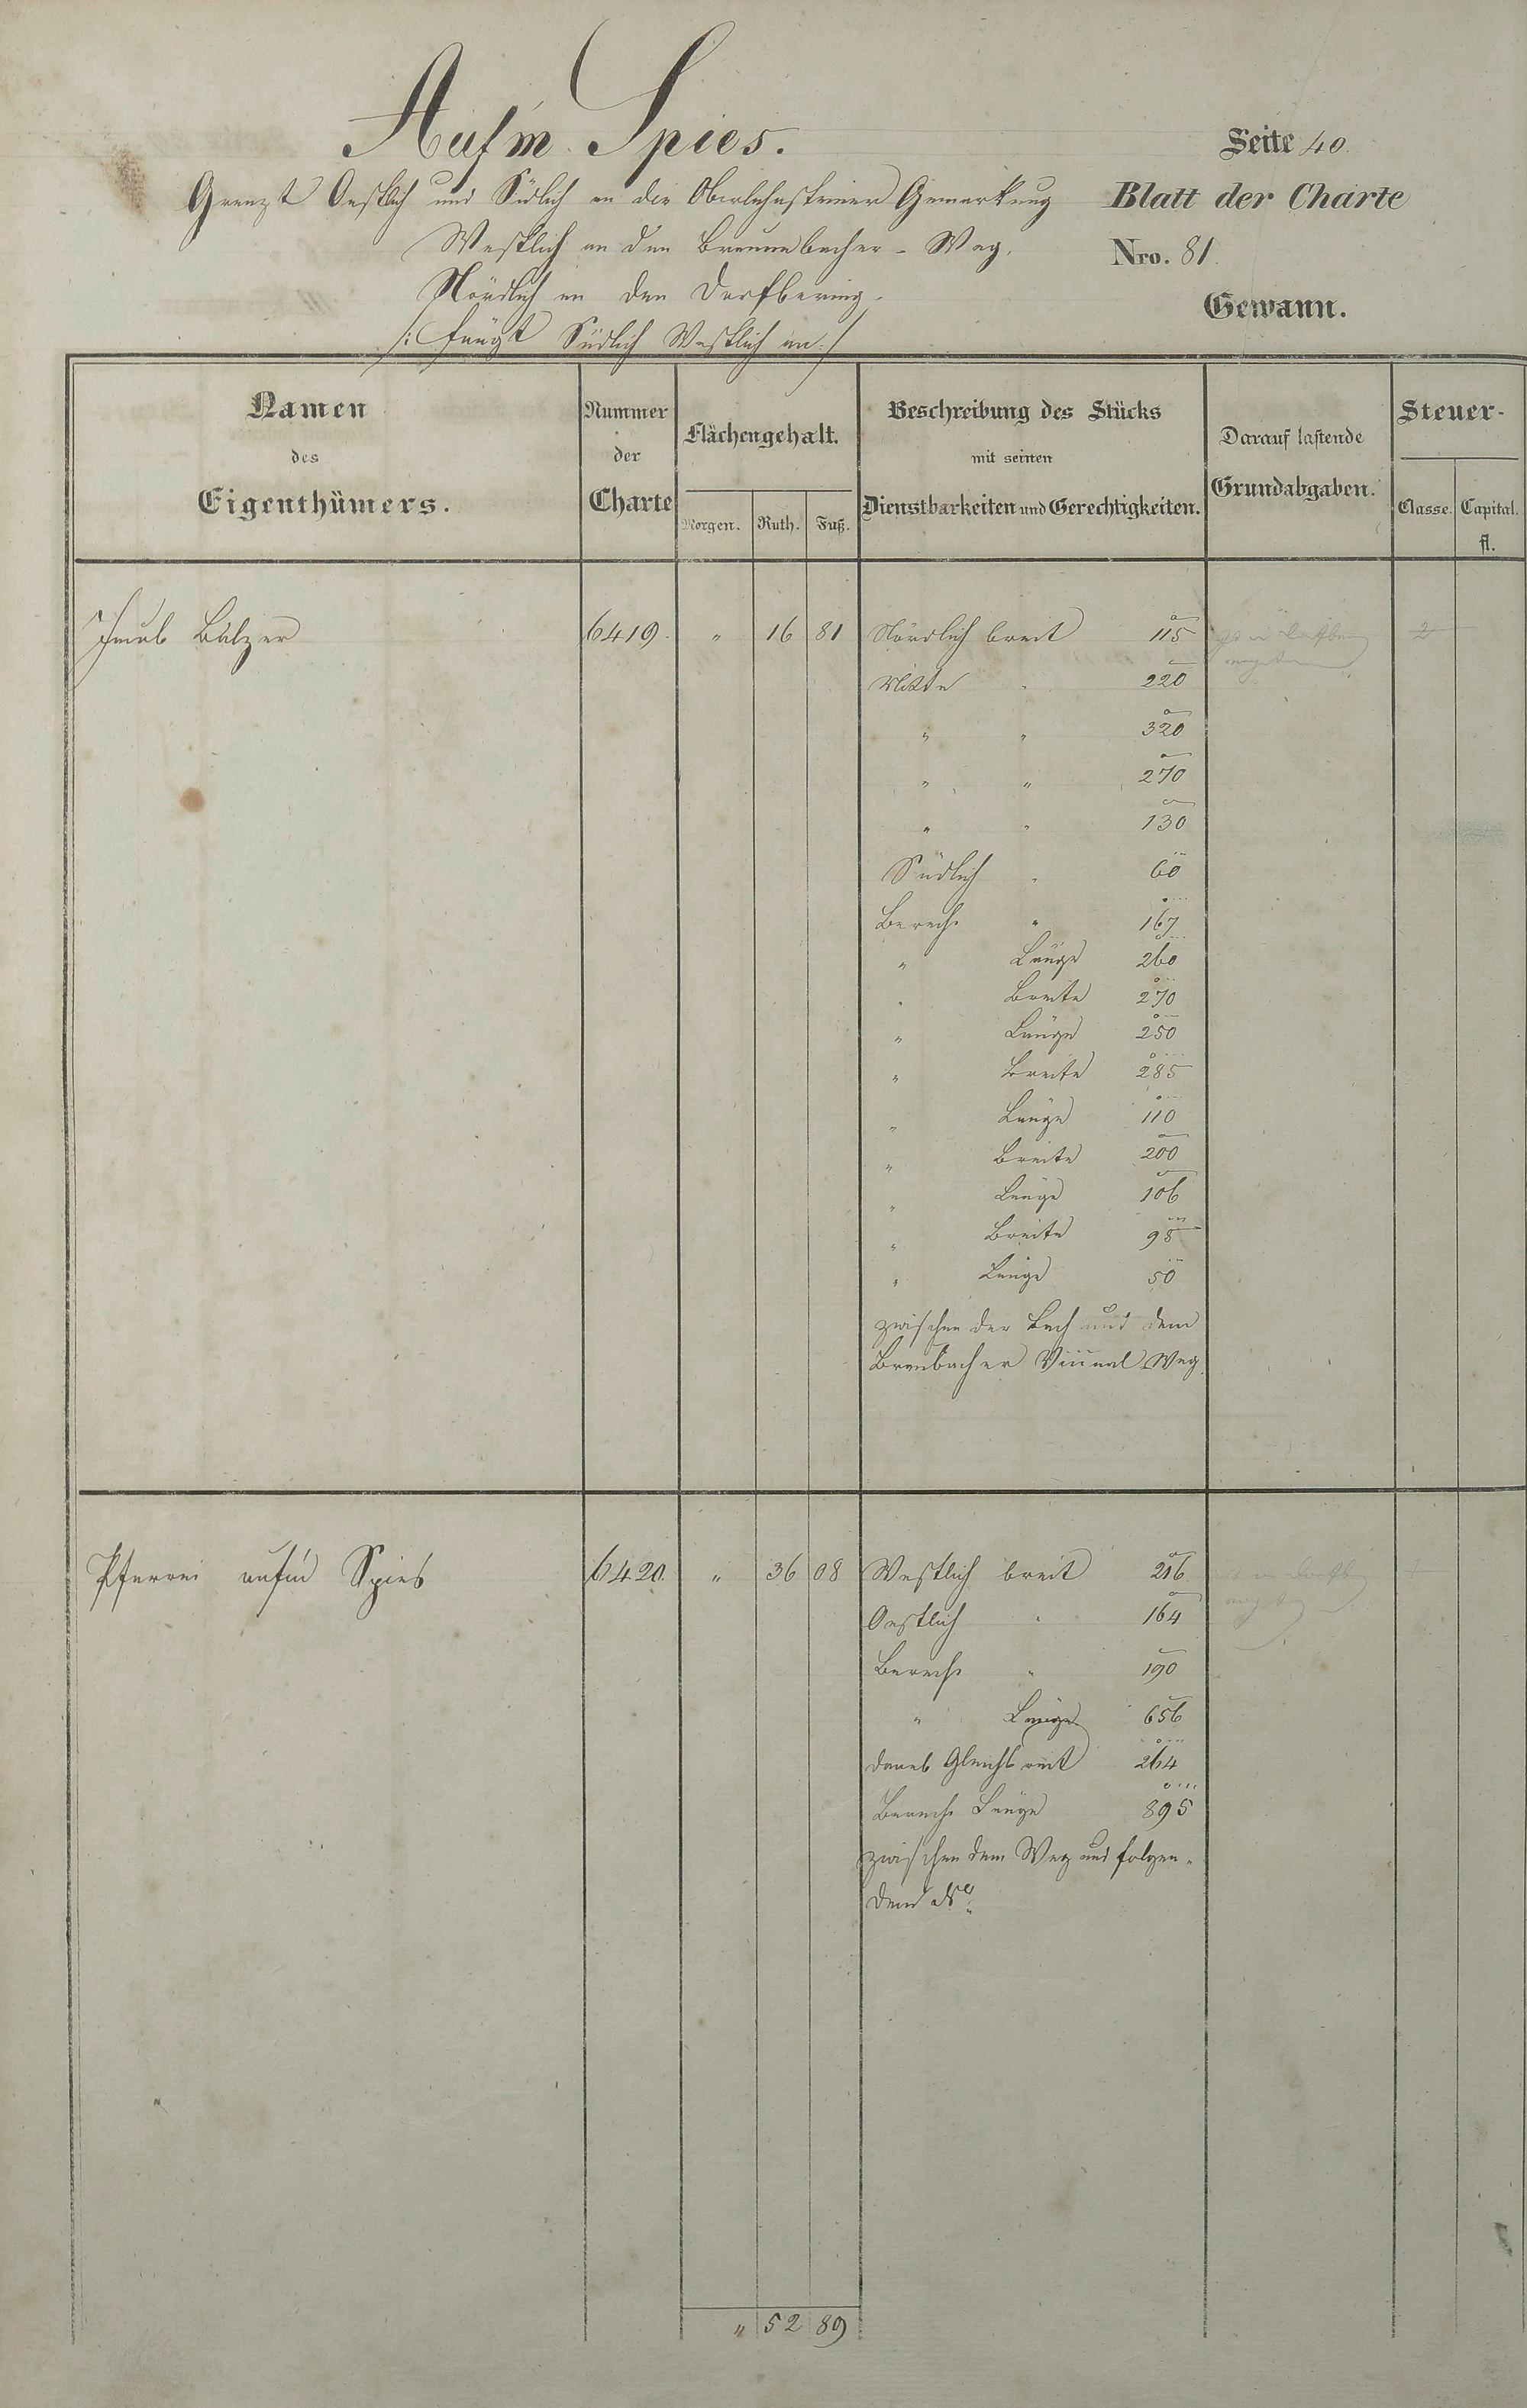 Auf'm Spies.
Seite 40.
Grenzt Oestlich und Südlich an die Oberlahnsteiner Gemarkung
Blatt der Charte
Westlich an den Braunebacher-Weg.
Nro. 81.
Nördlich an den Dorfbering.
Gewann.
/: fängt Südlich Westlich an :/
Namen des Eigenthümers.
Nummer der Charte
Flächengehalt.
Morgen. Ruth. Fuß.
Beschreibung des Stücks
mit seinen
Dienstbarkeiten und Gerechtigkeiten.
Darauf lastende
Grundabgaben.
Steuer-
Classe. Capital.
fl.
Jakob Balzer 6419. " 16 81 Nördlich breit 115 2
Mitte " 220
" " 320
" " 270
" " 130
Südlich " 60
Berech: " 167
" Länge 260
" Breite 270
" Länge 250
" Breite 285
" Länge 110
" Breite 200
" Länge 106
" Breite 98
" Länge 50
zwischen der Bach und dem
Braubacher Vicinal Weg.
Pfarrei auf'm Spies 6420. " 36 08 Westlich breit 216
Oestlich " 164
Berech: " 190
" Länge 656
daneb Gleichbreit 264
Berech: Länge 895
zwischen dem Weg und folgen-
dem No.
" 52 89